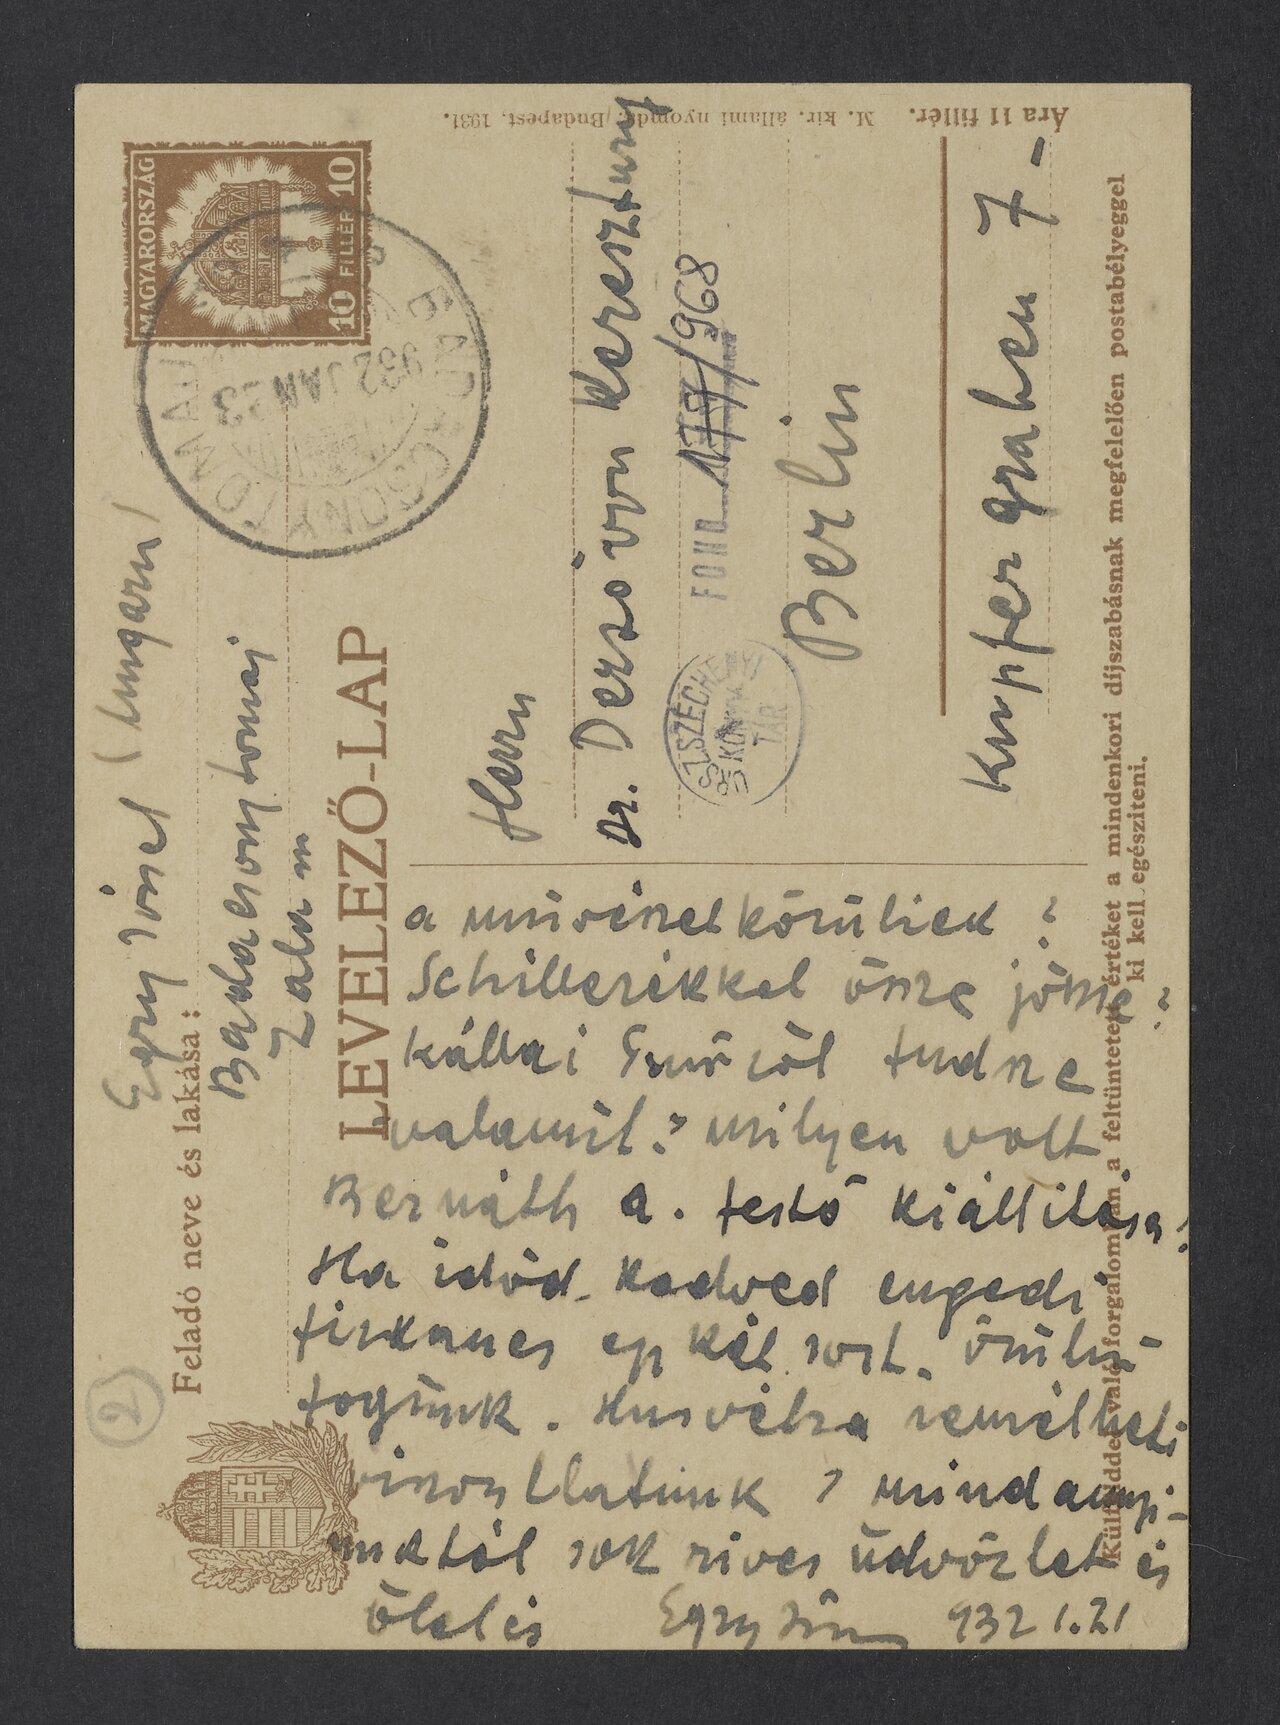 Ára 11 fillér. M. kir. állami nyomda, Budapest, 1931.
MAGYARORSZÁG
10 FILLÉR 10
BADACSONYTOMAJ
932 JAN 23
Feladó neve és lakása:
Egry József (Ungarn)
Badacsonytomaj
Zala m
LEVELEZŐ-LAP
Herrn
Dr. Derső von Keresztury
FOND 179/968
ORSZ. SZÉCHÉNYI KÖNYVTÁR
Berlin
Kupfergraben 7-
Külfölddel való forgalomban a feltüntetett értéket a mindenkori díjszabásnak megfelelően postabélyeggel
ki kell egészíteni.
2
a művészet körüliek?
Schillerékkel össze jössz?
Kállai Ernőről tudsz e
valamit? milyen volt
Bernáth A. festő kiállítása?
Ha időd kedved engedi
firkancs egy két sort. örülni
fogunk. Husvétra remélheti
viszontlátunk? mindannyi-
unktól sok szives üdvözlet és
ölelés Egry József 932 1.21